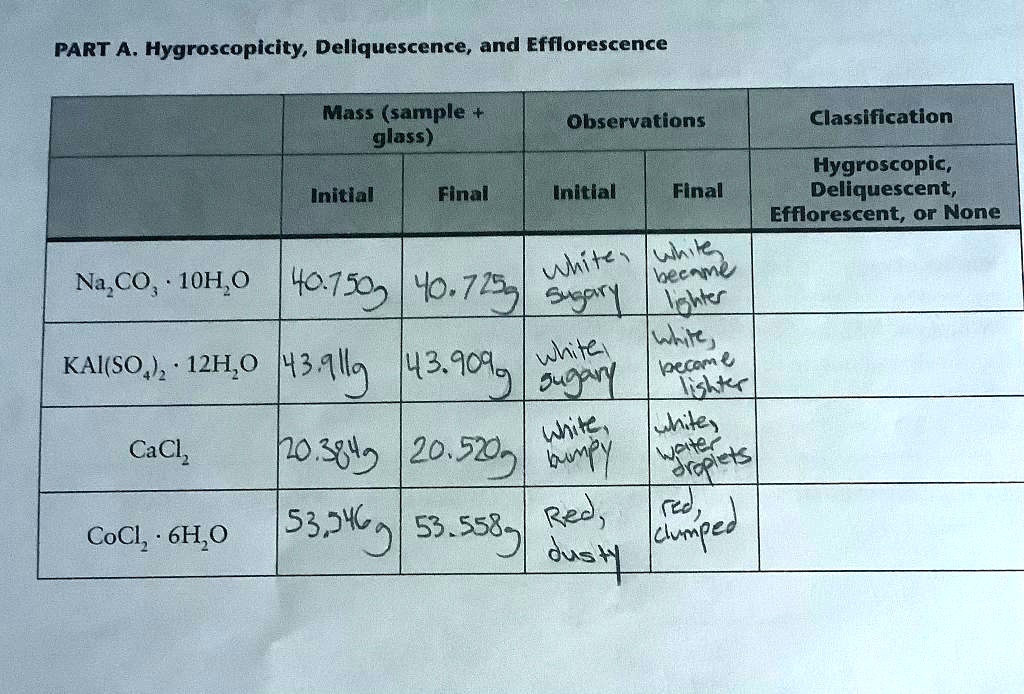 PART A. Hygroscopicity, Deliquescence, and Efflorescence
Mass (sample +
glass)
Observations
Classification
Initial
Final
Initial
Final
Hygroscopic,
Deliquescent,
Efflorescent, or None
Na₂CO₃ · 10H₂O
40.750g
40.725g
white,
sugary
white,
became
lighter
KAl(SO₄)₂ · 12H₂O
43.911g
43.909g
white,
sugary
white,
become
lighter
CaCl₂
20.384g
20.520g
white,
bumpy
white,
water
droplets
CoCl₂ · 6H₂O
53.558g
Red,
dusty
red,
clumped